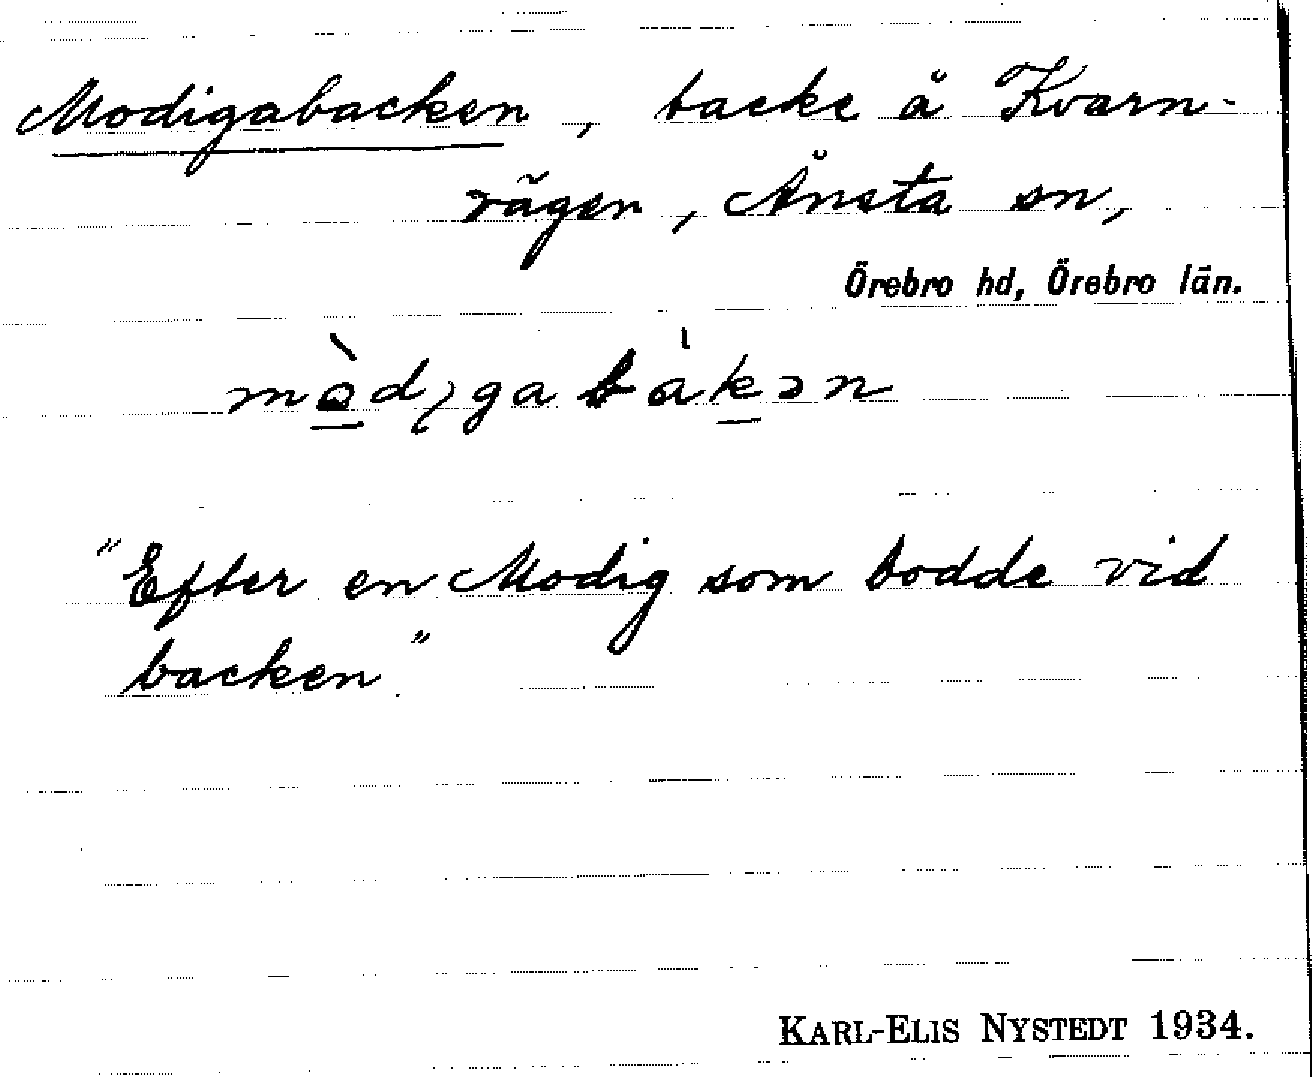 Modigabacken, backe å Kvarn-
vägen, Ånsta sn,
Örebro hd, Örebro län.
mò̲dıgabàk̲ən
"Efter en Modig som bodde vid
backen"
KARL-ELIS NYSTEDT 1934.